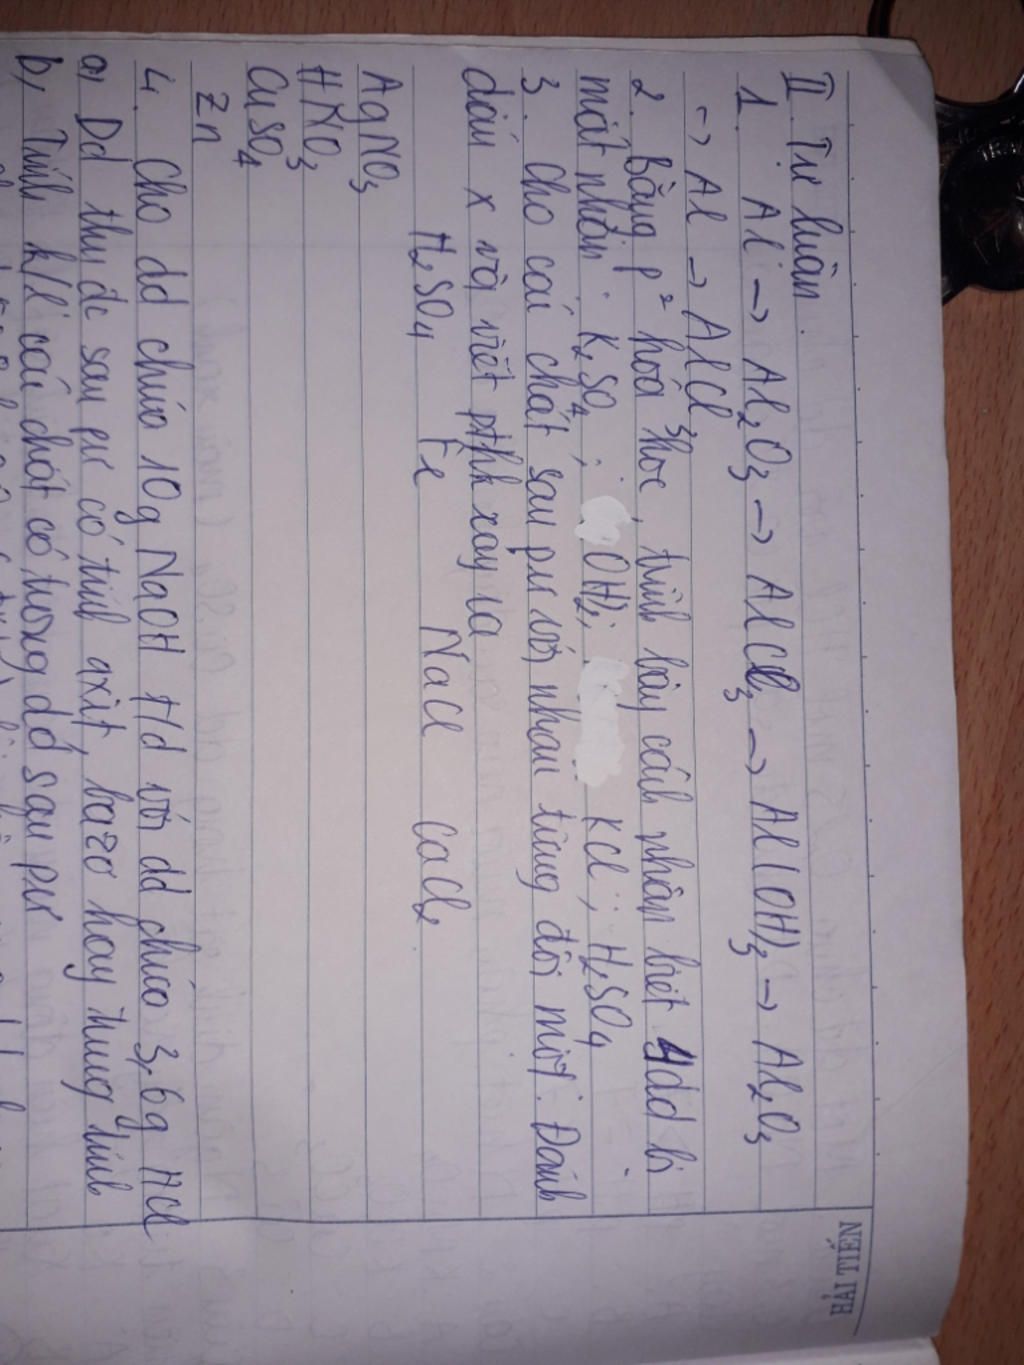 HẢI TIẾN
II. Tự luận.
1. Al → Al₂O₃ → AlCl₃ → Al(OH)₃ → Al₂O₃
→ Al → AlCl₃
2. Bằng p² hoá học, trình bày cách phân biệt 4dd bị
mất nhãn: K₂SO₄; OH)₂; KCl; H₂SO₄
3. Cho các chất sau pư với nhau từng đôi một. Đánh
dấu x và viết pthh xảy ra
H₂SO₄ Fe NaCl CaCl₂
AgNO₃
HNO₃
CuSO₄
Zn
4. Cho dd chứa 10g NaOH t/d với dd chứa 3,6g HCl
a, Dd thu đc sau pư có tính axit, bazo hay trung tính
b, Tính k/l các chất có trong dd sau pư